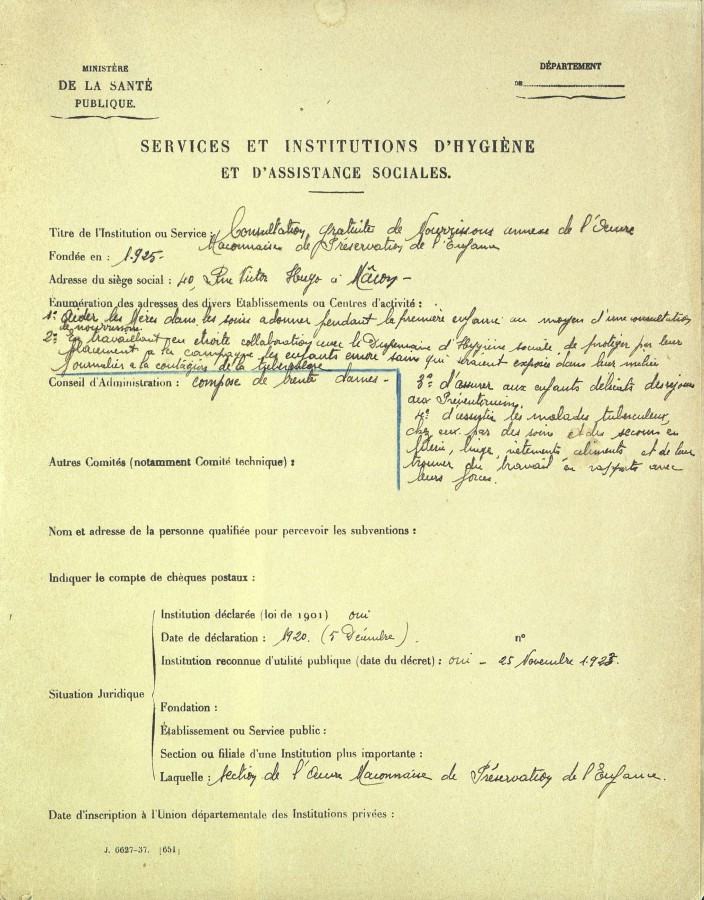 MINISTÈRE
DE LA SANTÉ
PUBLIQUE.
DÉPARTEMENT
DE
SERVICES ET INSTITUTIONS D'HYGIÈNE
ET D'ASSISTANCE SOCIALES.
Titre de l'Institution ou Service : Consultation gratuite de Nourrissons annexe de l'Œuvre
Maconnaise de Préservation de l'Enfance
Fondée en : 1925-
Adresse du siège social : 40, Rue Victor Hugo à Mâcon -
Enumération des adresses des divers Etablissements ou Centres d'activité :
1º Aider les Mères dans les soins a donner pendant la première enfance au moyen d'une consultation
de nourrissons.
2º En travaillant en étroite collaboration avec le Dispensaire d'Hygiène sociale de protéger par leur
placement a la campagne les enfants encore sains qui seraient exposés dans leur milieu
journalier a la contagion de la tuberculose
Conseil d'Administration : compose de trente dames -
3º d'assurer aux enfants délicats des séjours
aux Préventoriums.
4º d'assister les malades tuberculeux,
chez eux par des soins et des secours en
literie, linge, vêtements, aliments et de leur
trouver du travail en rapports avec
leurs forces.
Autres Comités (notamment Comité technique) :
Nom et adresse de la personne qualifiée pour percevoir les subventions :
Indiquer le compte de chèques postaux :
Situation Juridique
Institution déclarée (loi de 1901) oui
Date de déclaration : 1920. (5 Décembre). nº
Institution reconnue d'utilité publique (date du décret) : oui - 25 Novembre
Fondation :
Établissement ou Service public :
Section ou filiale d'une Institution plus importante :
Laquelle : Section de l'Œuvre Maconnaise de Préservation de l'Enfance.
Date d'inscription à l'Union départementale des Institutions privées :
J. 6627-37. [651]